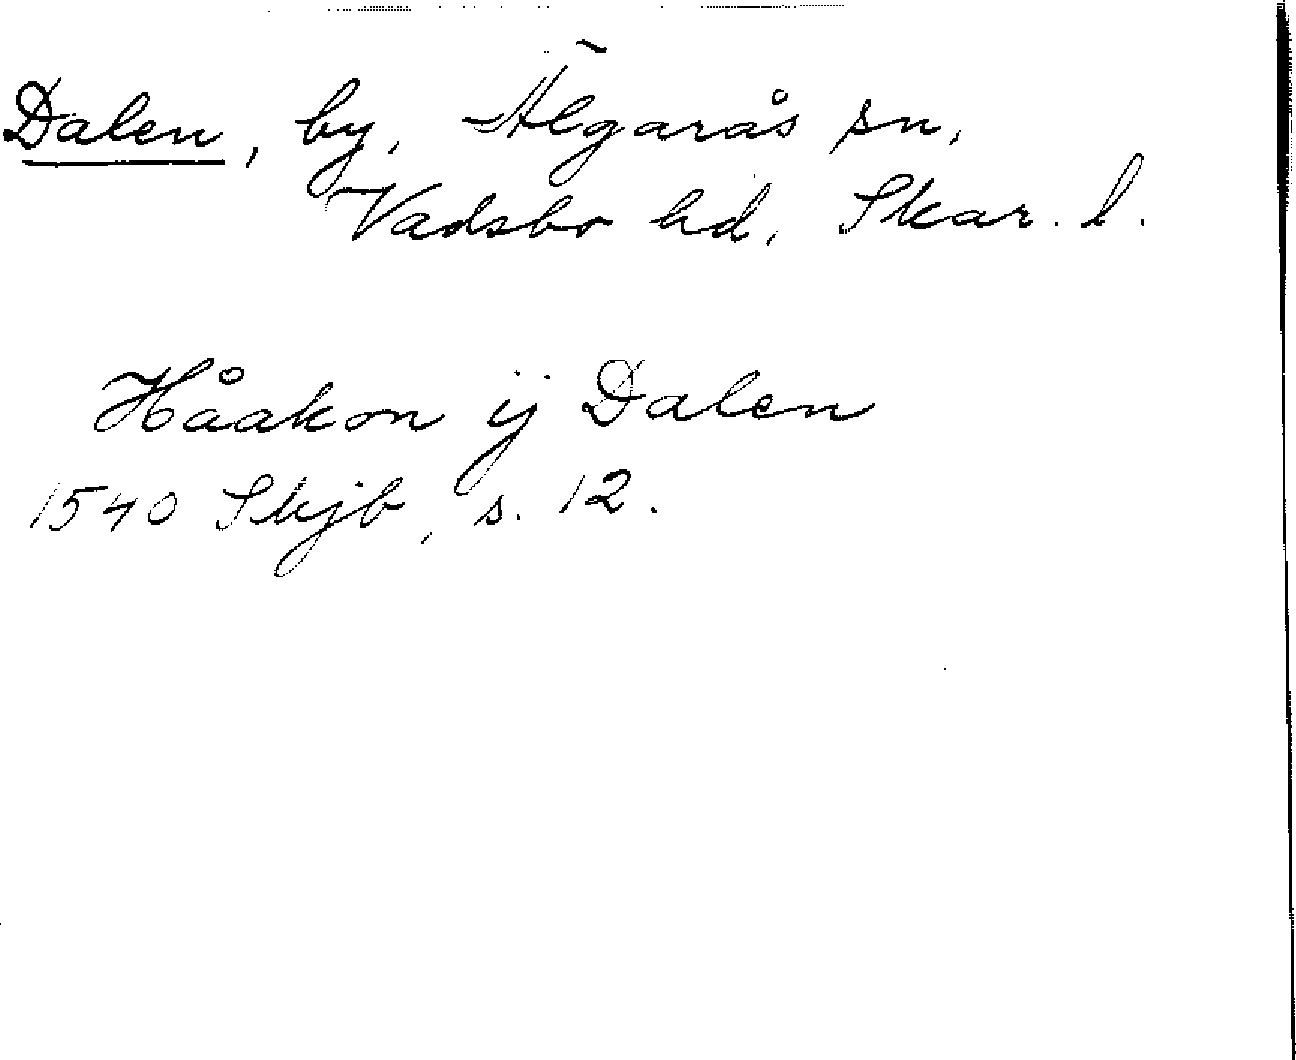 Dalen, by, Älgarås sn,
Vadsbo hd, Skar. l.
Håakon ij Dalen
1540 Skjb, s. 12.